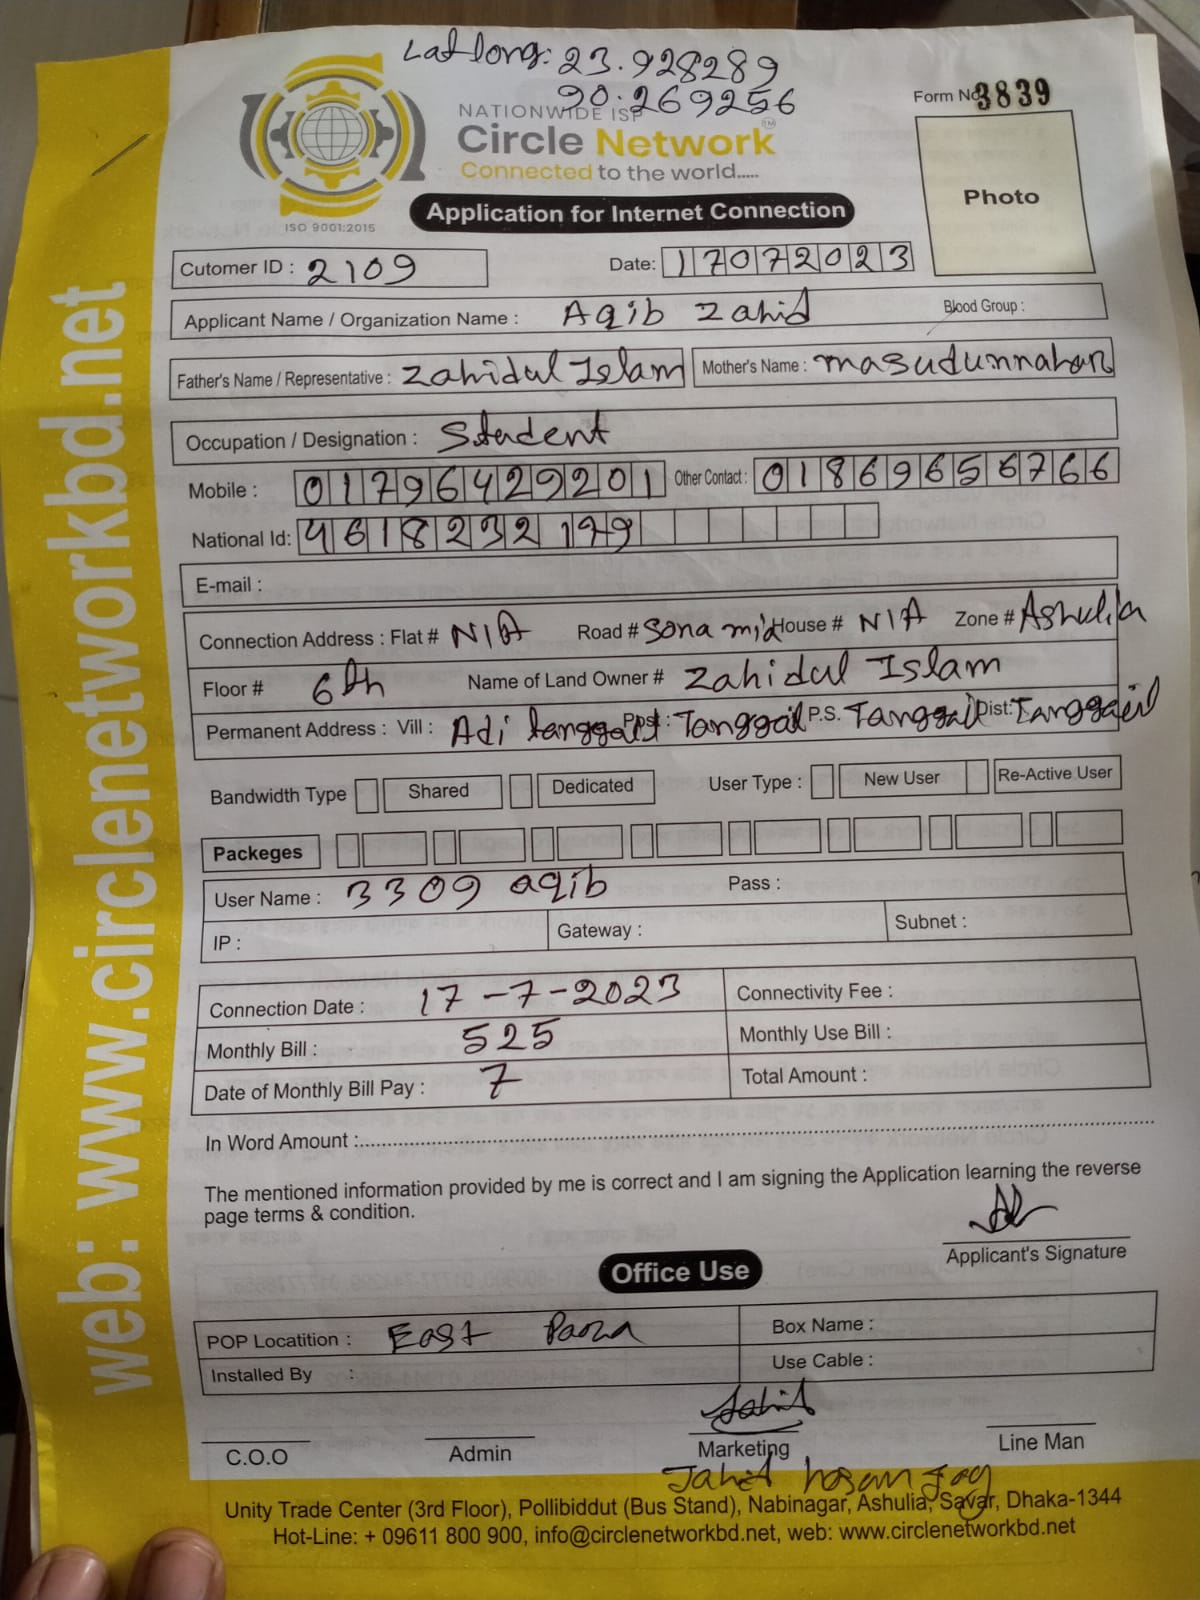 Lat long: 23.928289
90.269256
Form No 3839
NATIONWIDE ISP
Circle Network TM
Connected to the world.....
ISO 9001:2015
Application for Internet Connection
Photo
Cutomer ID : 2109 Date: 17072023
Applicant Name / Organization Name : Aqib Zahid Blood Group :
Father's Name / Representative : Zahidul Islam Mother's Name : Masudunnahar
Occupation / Designation : Student
Mobile : 01796429201 Other Contact : 01869656766
National Id: 4618232179
E-mail :
Connection Address : Flat # N/A Road # Sona mia House # N/A Zone # Ashulia
Floor # 6th Name of Land Owner # Zahidul Islam
Permanent Address : Vill : Adi tanggail Post : Tanggail P.S. Tanggail Dist: Tanggail
Bandwidth Type Shared Dedicated User Type : New User Re-Active User
Packeges
User Name : 3309 aqib Pass :
IP : Gateway : Subnet :
Connection Date : 17-7-2023 Connectivity Fee :
Monthly Bill : 525 Monthly Use Bill :
Date of Monthly Bill Pay : 7 Total Amount :
In Word Amount :
The mentioned information provided by me is correct and I am signing the Application learning the reverse
page terms & condition.
Applicant's Signature
Office Use
POP Locatition : East Para Box Name :
Installed By : Use Cable :
C.O.O Admin Marketing Line Man
Jahid hosan
Unity Trade Center (3rd Floor), Pollibiddut (Bus Stand), Nabinagar, Ashulia, Savar, Dhaka-1344
Hot-Line: + 09611 800 900, info@circlenetworkbd.net, web: www.circlenetworkbd.net
web: www.circlenetworkbd.net